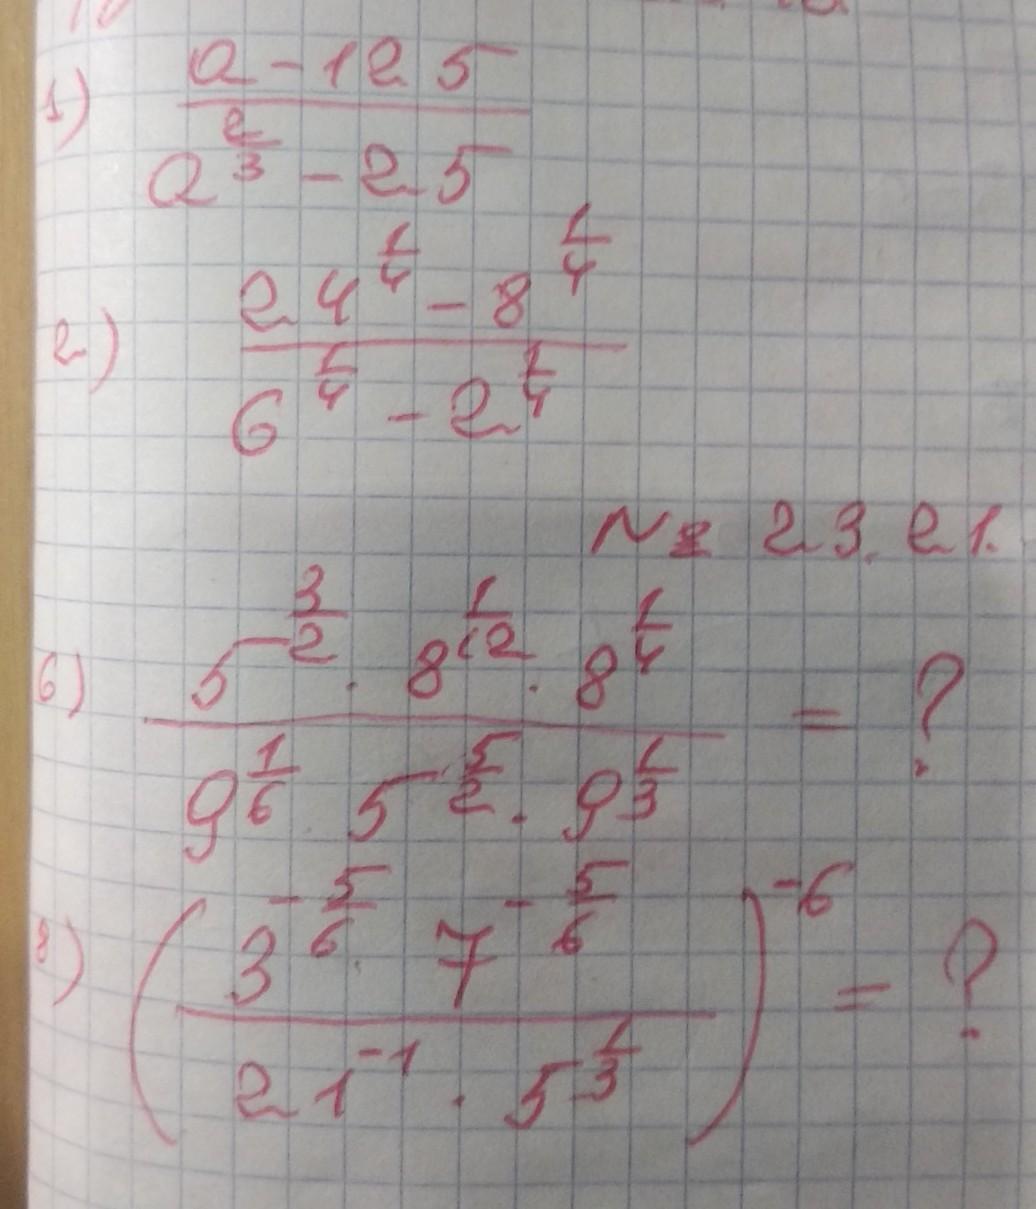 1) (a - 125) / (a^(2/3) - 25)
2) (24^(1/4) - 8^(1/4)) / (6^(1/4) - 2^(1/4))
№ 23.21.
6) (5^(3/2) · 8^(1/12) · 8^(1/4)) / (9^(1/6) · 5^(5/2) · 9^(1/3)) = ?
8) ((3^(-5/6) · 7^(-5/6)) / (21^(-1) · 5^(1/3)))^(-6) = ?